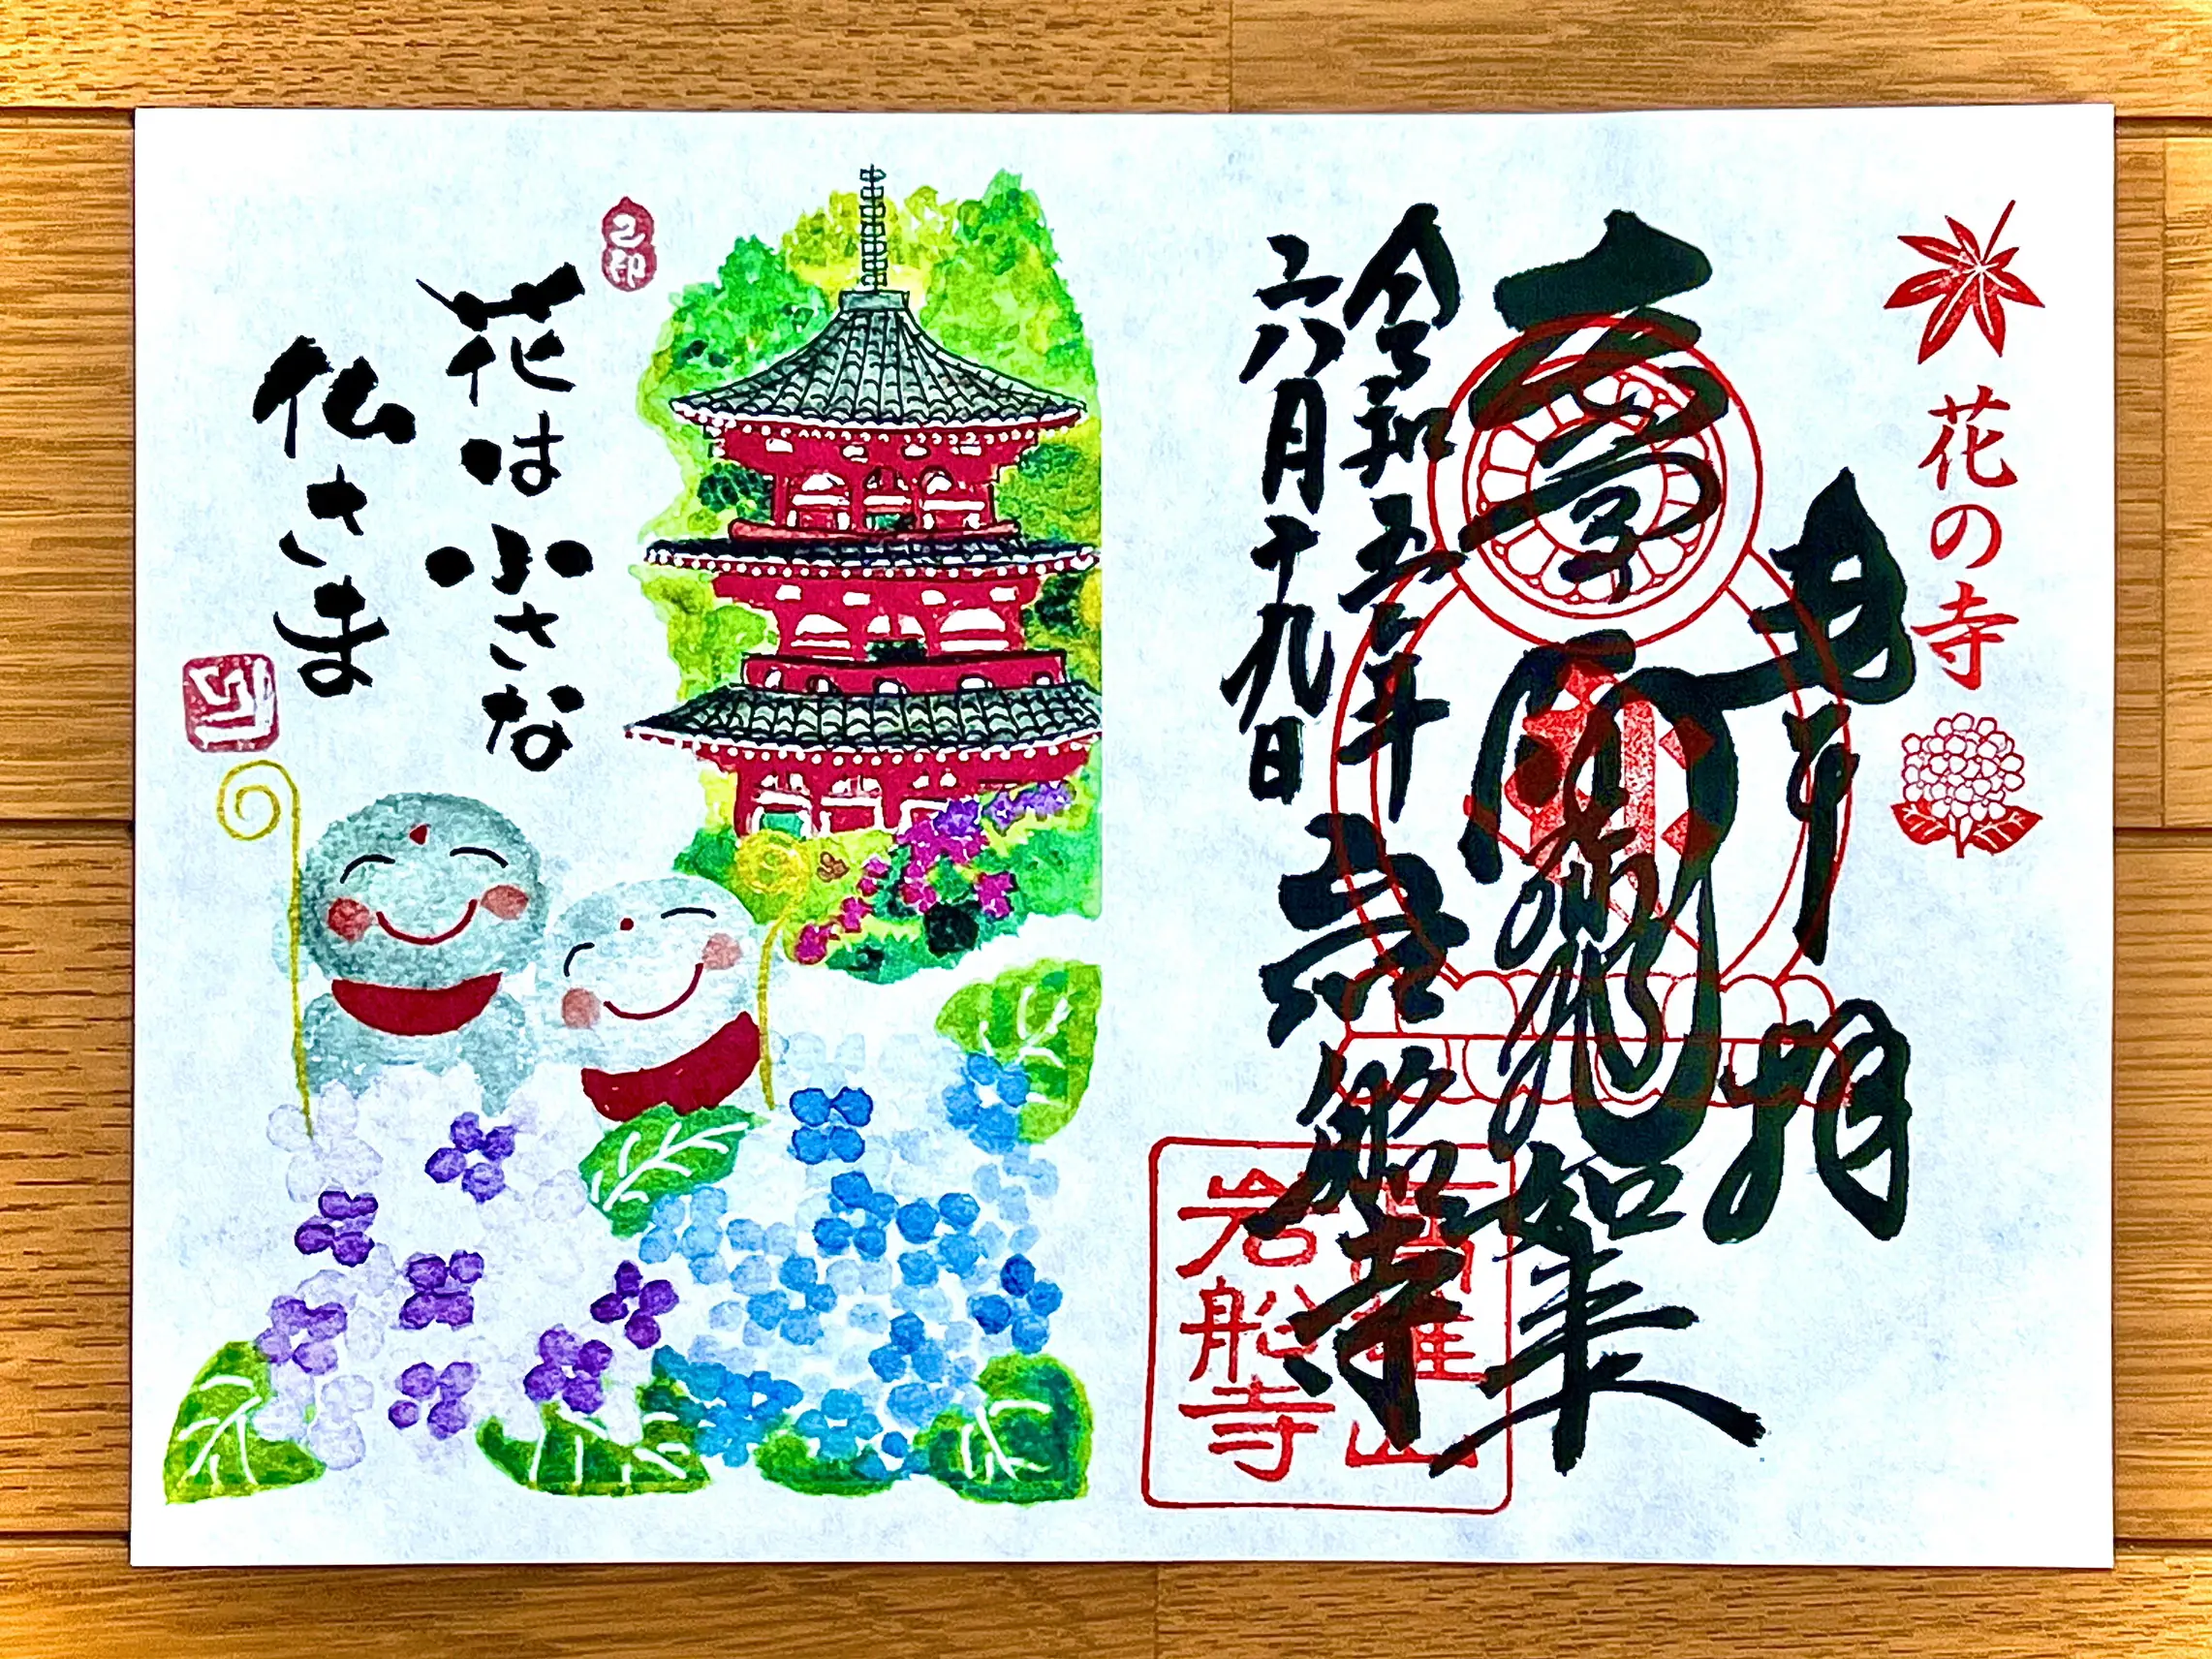 花の寺
奉拝
阿弥陀如来
令和五年
六月十九日
岩船寺
高雄山
岩船寺
花は小さな
仏さま